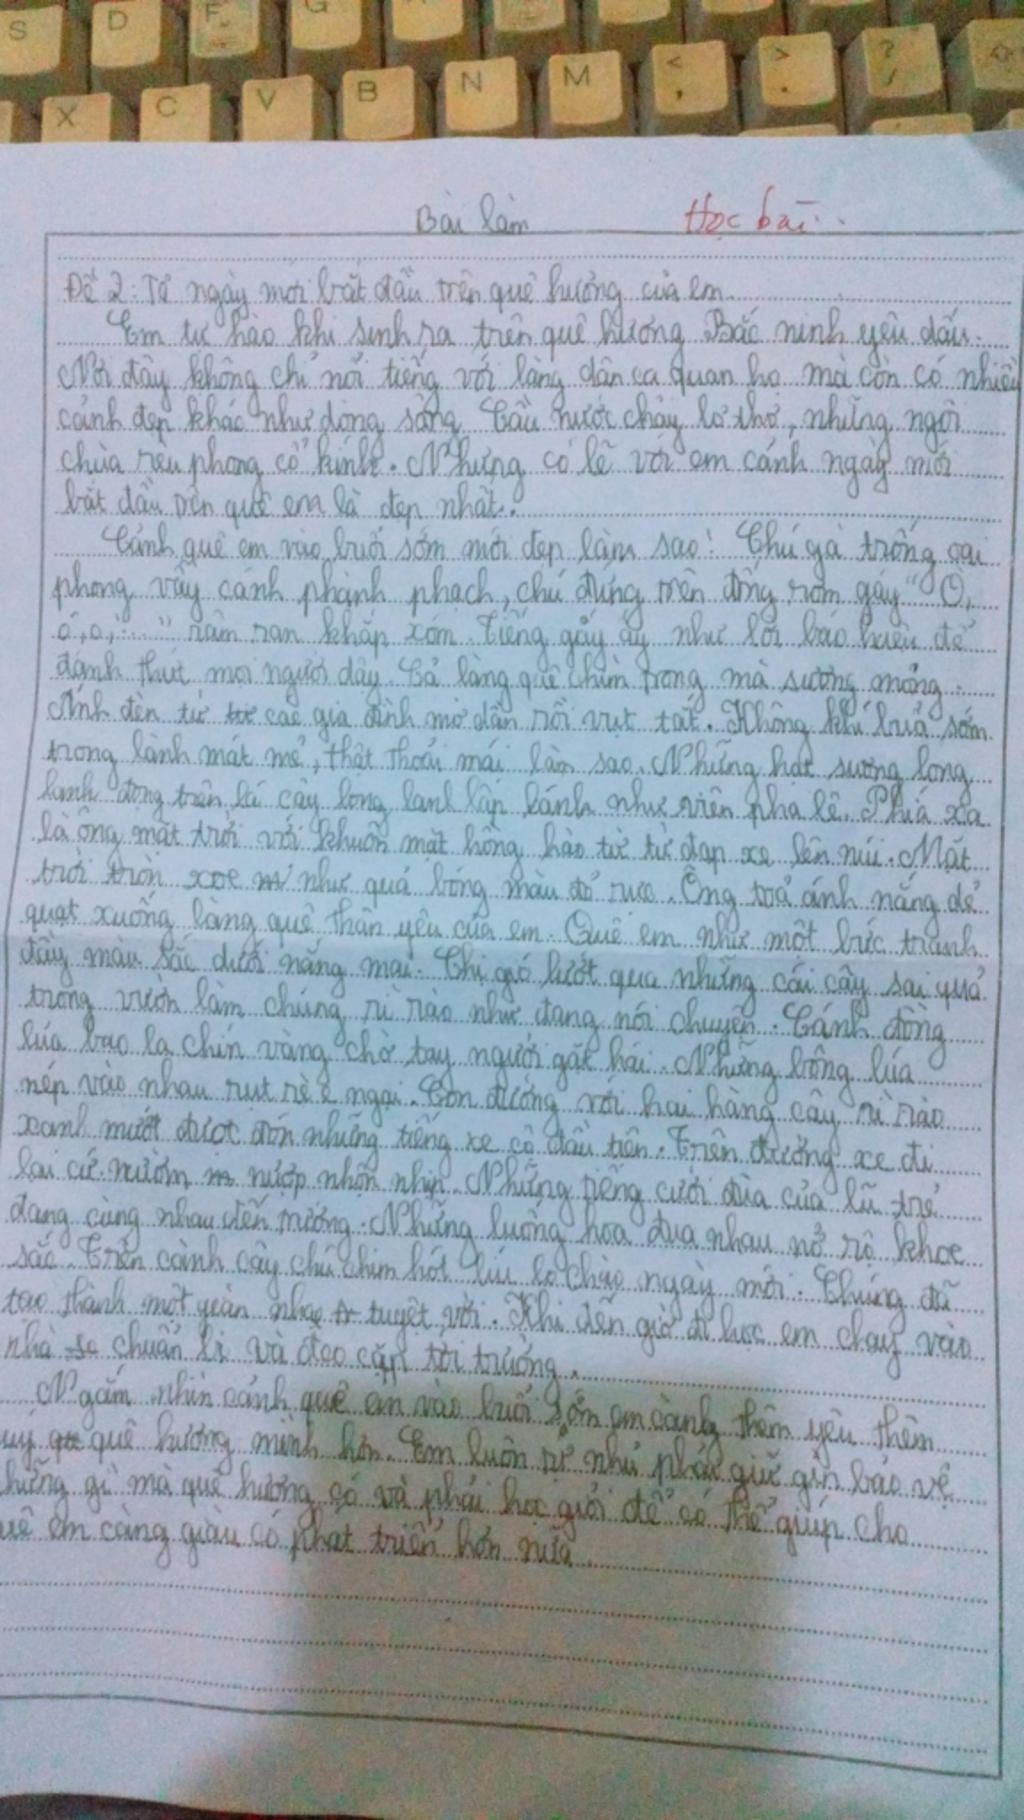 S D F G
X C V B N M < , > . ? /
Bài làm Học bài...
Đề 2: Tả ngày mới bắt đầu trên quê hương của em.
Em tự hào khi sinh ra trên quê hương Bắc ninh yêu dấu.
Nơi đây không chỉ nổi tiếng với làng dân ca quan họ mà còn có nhiều
cảnh đẹp khác như dòng sông Cầu nước chảy lơ thơ, những ngôi
chùa rêu phong cổ kính. Nhưng có lẽ với em cảnh ngày mới
bắt đầu trên quê em là đẹp nhất..
Cảnh quê em vào buổi sớm mới đẹp làm sao! Chú gà trống oai
phong vẫy cánh phành phạch, chú đứng trên đống rơm gáy "Ò,
ó, o,....." râm ran khắp xóm. Tiếng gáy ấy như lời báo hiệu để
đánh thức mọi người dậy. Cả làng quê chìm trong mà sương mỏng.
Ánh đèn từ các gia đình mở dần rồi vụt tắt. Không khí buổi sớm
trong lành mát mẻ, thật thoải mái làm sao. Những hạt sương long
lanh đọng trên lá cây long lanh lấp lánh như viên pha lê. Phía xa
là ông mặt trời với khuôn mặt hồng hào từ từ đạp xe lên núi. Mặt
trời tròn xoe như quả bóng màu đỏ rực. Ông toả ánh nắng dẻ
quạt xuống làng quê thân yêu của em. Quê em như một bức tranh
đầy màu sắc dưới nắng mai. Chị gió lướt qua những cái cây sai quả
trong vườn làm chúng rì rào như đang nói chuyện. Cánh đồng
lúa bao la chín vàng chờ tay người gặt hái. Những bông lúa
nép vào nhau rụt rè e ngại. Con đường với hai hàng cây rì rào
xanh mướt được đón những tiếng xe cộ đầu tiên. Trên đường xe đi
lại cứ nườm nượp nhộn nhịp. Những tiếng cười đùa của lũ trẻ
đang cùng nhau đến trường. Những luống hoa đua nhau nở rộ khoe
sắc. Trên cành cây chú chim hót líu lo chào ngày mới. Chúng đã
tạo thành một giàn nhạc tuyệt vời. Khi đến giờ đi học em chạy vào
nhà chuẩn bị và đeo cặp tới trường.
Ngắm nhìn cảnh quê em vào buổi sớm em càng thêm yêu thêm
uý quê hương mình hơn. Em luôn tự nhủ phải giữ gìn bảo vệ
hững gì mà quê hương có và phải học giỏi để có thể giúp cho
uê em càng giàu có phát triển hơn nữa.